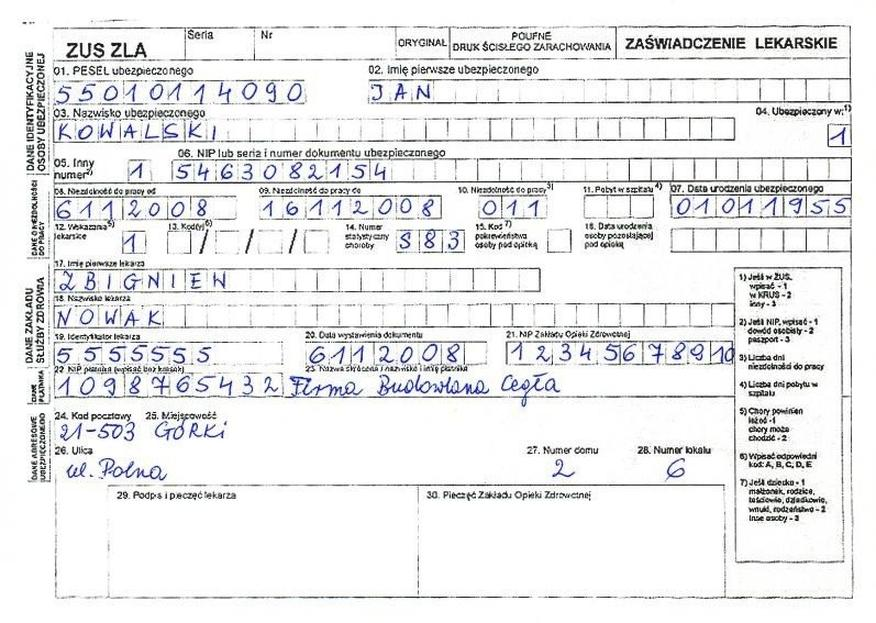 ZUS ZLA Seria Nr ORYGINAŁ POUFNE DRUK ŚCISŁEGO ZARACHOWANIA ZAŚWIADCZENIE LEKARSKIE
DANE IDENTYFIKACYJNE OSOBY UBEZPIECZONEJ
01. PESEL ubezpieczonego 02. Imię pierwsze ubezpieczonego
55010114090 JAN
03. Nazwisko ubezpieczonego 04. Ubezpieczony w:1)
KOWALSKI 1
05. Inny numer2) 1 06. NIP lub seria i numer dokumentu ubezpieczonego
5463082154
DANE O NIEZDOLNOŚCI DO PRACY
08. Niezdolność do pracy od 09. Niezdolność do pracy do 10. Niezdolność do pracy3) 11. Pobyt w szpitalu4) 07. Data urodzenia ubezpieczonego
6112008 16112008 011 01011955
12. Wskazania5) lekarskie 1 13. Kod(y)6) / / / 14. Numer statystyczny choroby S83 15. Kod7) pokrewieństwa osoby pod opieką 16. Data urodzenia osoby pozostającej pod opieką
DANE ZAKŁADU SŁUŻBY ZDROWIA
17. Imię pierwsze lekarza
ZBIGNIEW
18. Nazwisko lekarza
NOWAK
19. Identyfikator lekarza 20. Data wystawienia dokumentu 21. NIP Zakładu Opieki Zdrowotnej
5555555 6112008 12345678910
DANE PŁATNIKA
22. NIP płatnika (wpisać bez kresek) 23. Nazwa skrócona / nazwisko i imię płatnika
1098765432 Firma Budowlana Cegła
DANE ADRESOWE UBEZPIECZONEGO
24. Kod pocztowy 25. Miejscowość
21-503 GÓRKI
26. Ulica 27. Numer domu 28. Numer lokalu
ul. Polna 2 6
29. Podpis i pieczęć lekarza 30. Pieczęć Zakładu Opieki Zdrowotnej
1) Jeśli w ZUS,
wpisać - 1
w KRUS - 2
inny - 3
2) Jeśli NIP, wpisać - 1
dowód osobisty - 2
paszport - 3
3) Liczba dni
niezdolności do pracy
4) Liczba dni pobytu w
szpitalu
5) Chory powinien
leżeć - 1
chory może
chodzić - 2
6) Wpisać odpowiedni
kod: A, B, C, D, E
7) Jeśli dziecko - 1
małżonek, rodzice,
teściowie, dziadkowie,
wnuki, rodzeństwo - 2
inne osoby - 3